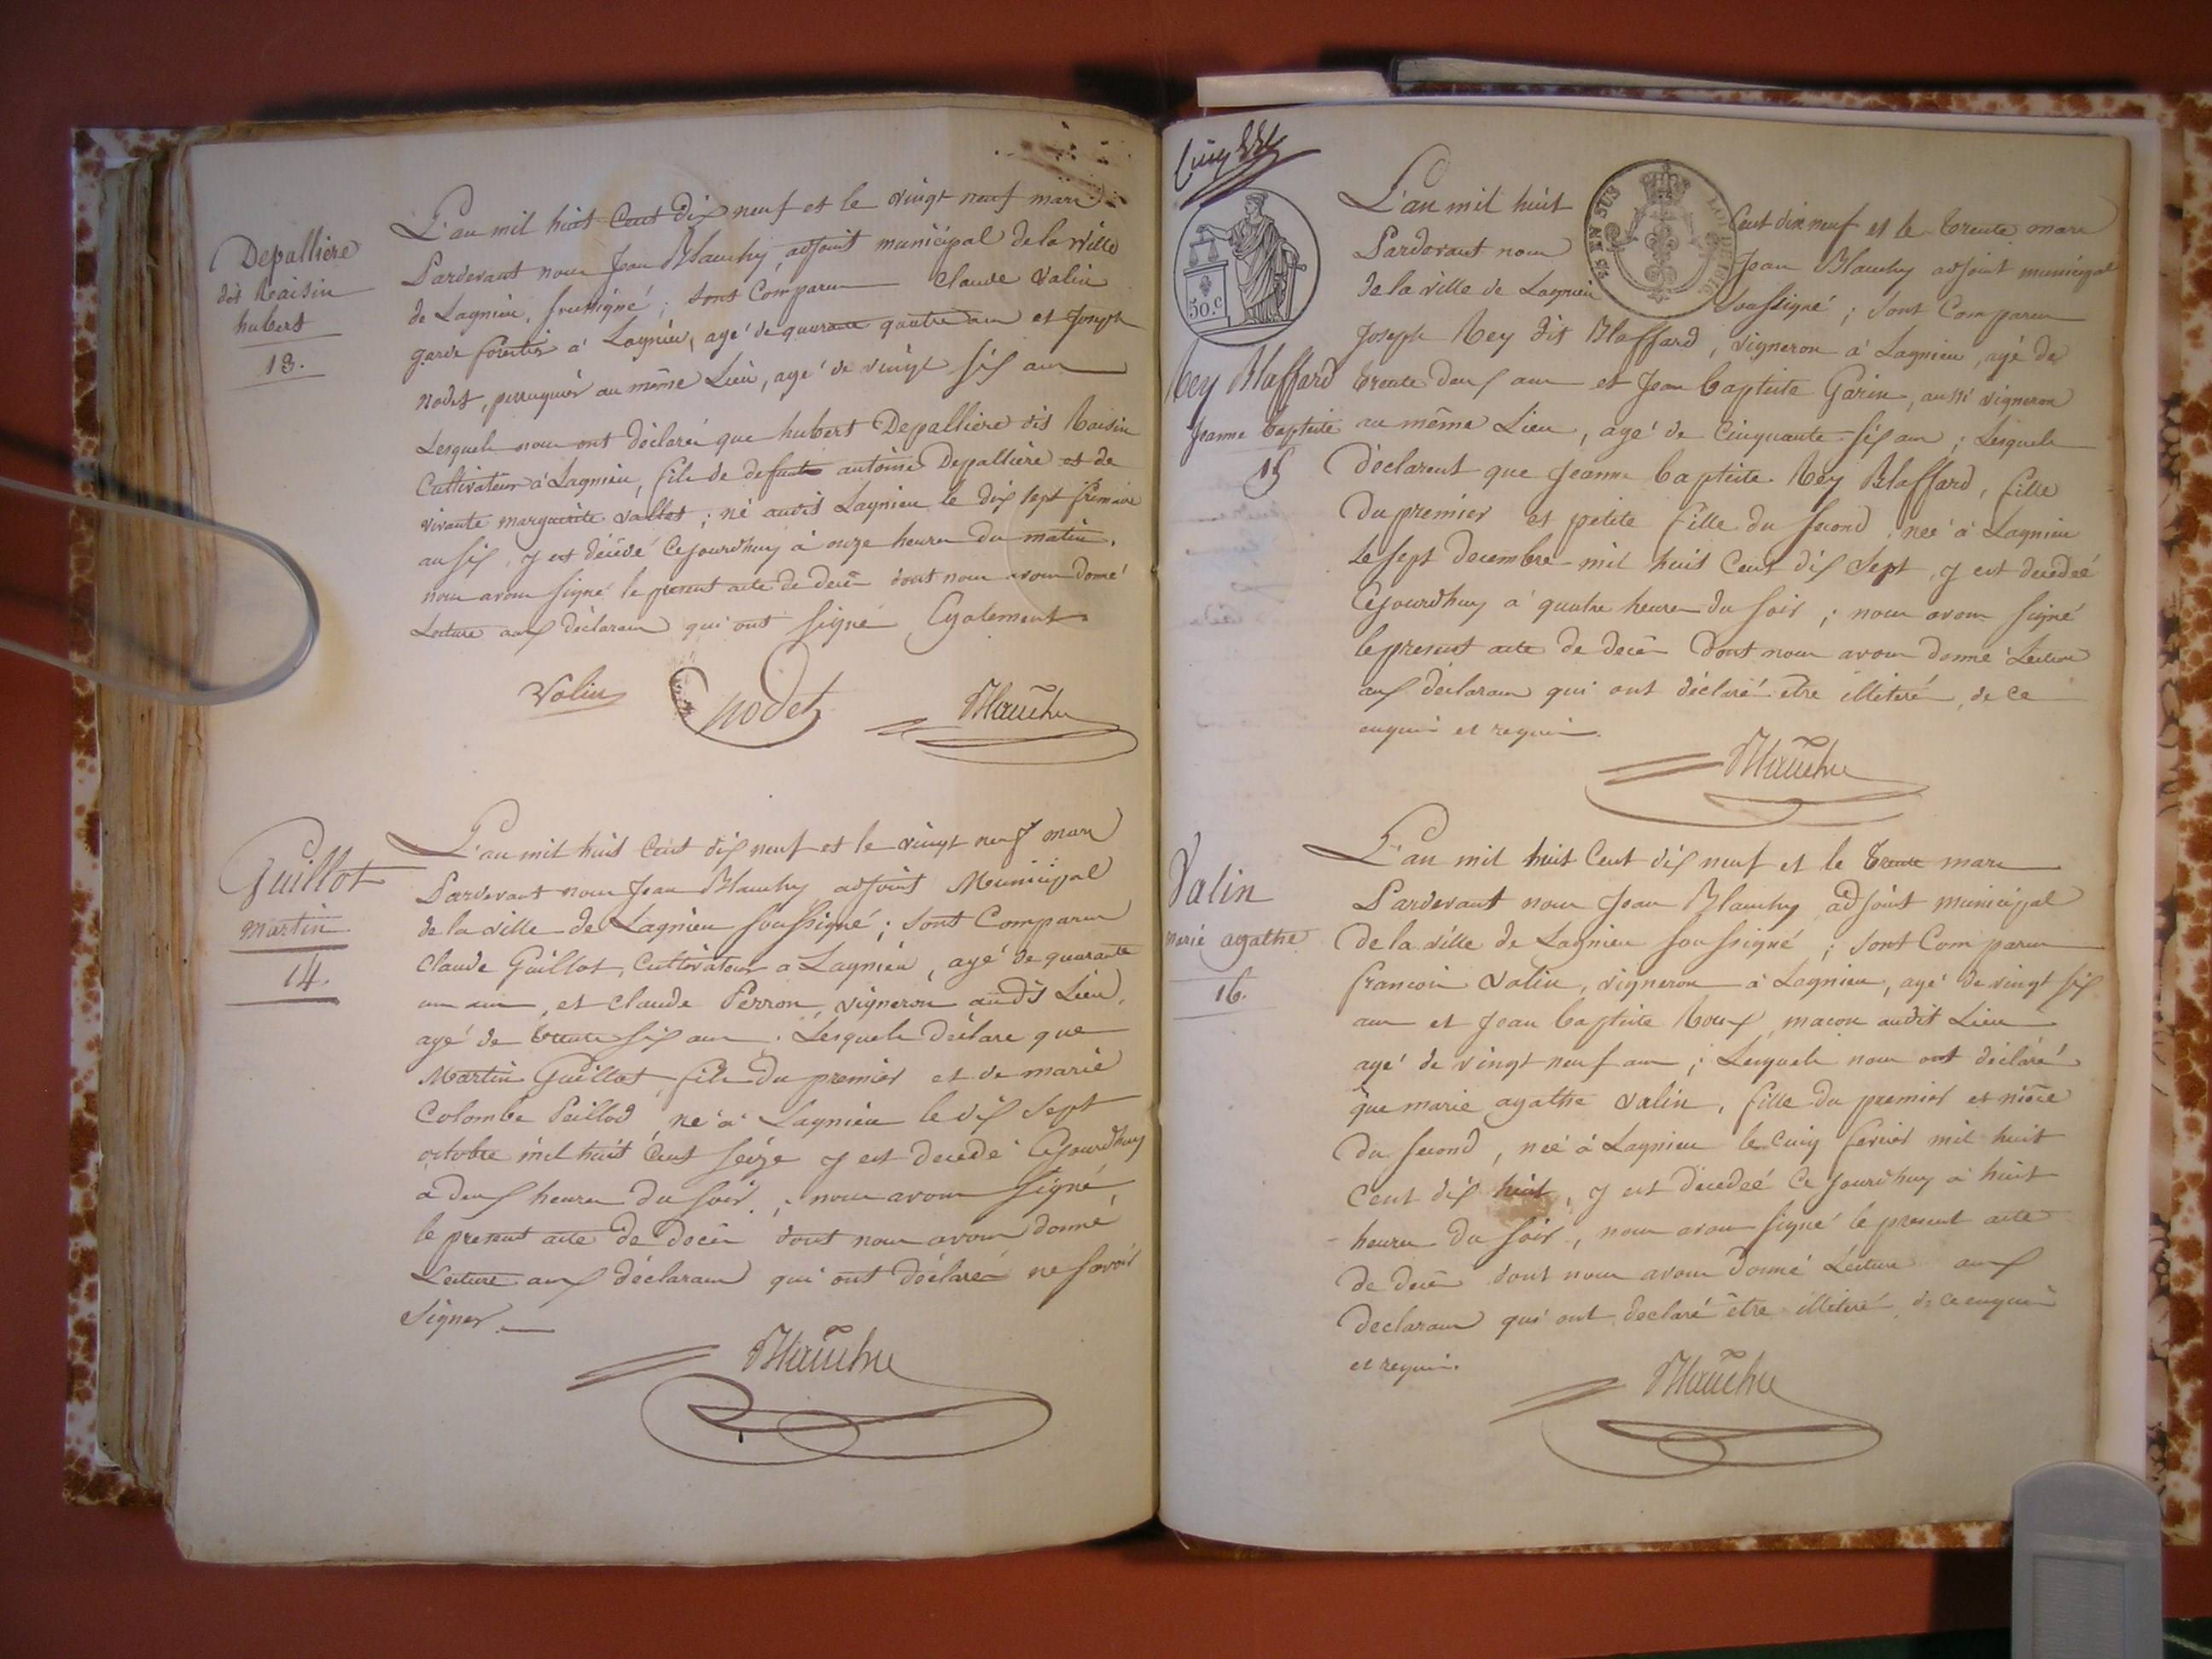 Depallière
dit Raisin
hubert
13.
L'an mil huit Cent dix neuf et le vingt neuf mars
Pardevant nous Jean Blanchy, adjoint municipal de la Ville
de Lagnieu, soussigné ; sont Comparus Claude Valin
garde forestier à Lagnieu, agé de quarante quatre ans et Joseph
nodet, perruquier au même Lieu, agé de vingt six ans
Lesquels nous ont déclaré que hubert Depallière dit Raisin
Cultivateur à Lagnieu, fils de defunt antoine Depallière et de
vivante marguerite vallet ; né audit Lagnieu le dix sept frimaire
an six, y est décédé Cejourd'huy à onze heures du matin.
nous avons signé le present acte de decès dont nous avons donné
Lecture aux déclarans qui ont signé Egalement
Valin nodet Blanchy
Guillot
martin
14.
L'an mil huit Cent dix neuf et le vingt neuf mars
Pardevant nous Jean Blanchy adjoint Municipal
de la ville de Lagnieu soussigné ; sont Comparus
Claude Guillot, Cultivateur a Lagnieu, agé de quarante
un ans, et Claude Perron, vigneron audit Lieu,
agé de trente six ans ; Lesquels déclare que
Martin Guillot fils du premier et de marie
Colombe Peillod, né à Lagnieu le dix sept
octobre mil huit Cent seize y est decedé Cejourd'huy
a deux heures du soir ; nous avons signé,
le present acte de decès dont nous avons donné
Lecture aux déclarans qui ont déclaré ne savoir
signer
Blanchy
50.c
SUS
Rey Blaffard
Jeanne baptiste
15
L'an mil huit Cent dix neuf et le trente mars
Pardevant nous Jean Blanchy adjoint municipal
de la ville de Lagnieu Soussigné ; sont Comparus
Joseph Rey dit Blaffard, vigneron à Lagnieu, agé de
trente deux ans et Jean baptiste Garin, aussi vigneron
au même Lieu, agé de Cinquante six ans ; Lesquels
déclarent que Jeanne baptiste Rey Blaffard, fille
du premier et petite fille du second, née à Lagnieu
Le sept decembre mil huit Cent dix sept, y est decedeé
Cejourd'huy à quatre heures du soir ; nous avons signé
le present acte de decès dont nous avons donné Lecture
aux declarans qui ont déclaré être illiteré, de ce
enquis et requis.
Blanchy
Valin
marie agathe
16.
L'an mil huit Cent dix neuf et le trente mars
Pardevant nous Jean Blanchy adjoint municipal
de la ville de Lagnieu soussigné ; sont Comparus
francois Valin, vigneron à Lagnieu, agé de vingt six
ans et Jean baptiste Roux, macon audit Lieu
agé de vingt neuf ans ; Lesquels nous ont déclaré
que marie agathe valin, fille du premier et niéce
du second, née à Lagnieu le cinq fevrier mil huit
Cent dix huit, y est decedeé Ce jourd'huy à huit
heures du soir, nous avons signé le present acte
de decès dont nous avons donné Lecture aux
declarans qui ont declaré être illiteré de ce enquis
et requis.
Blanchy